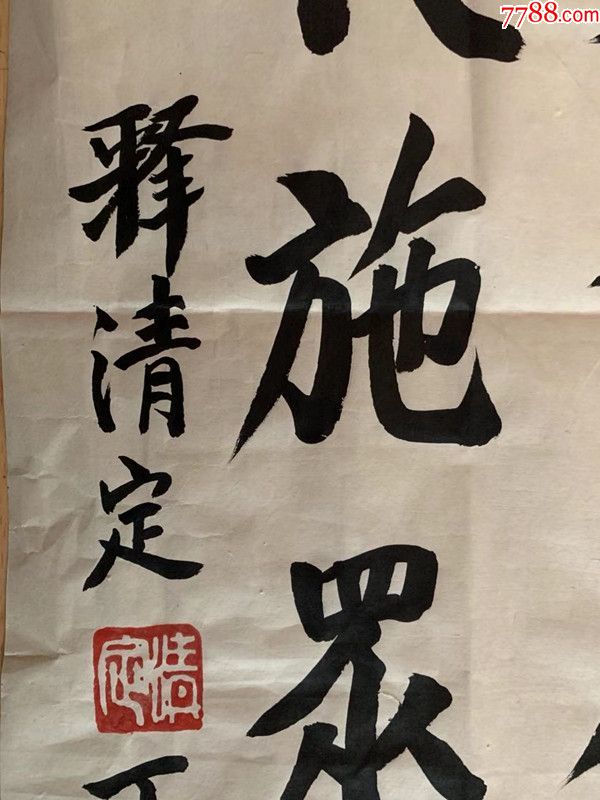 7788.com
施眾
釋清定
清定
丁